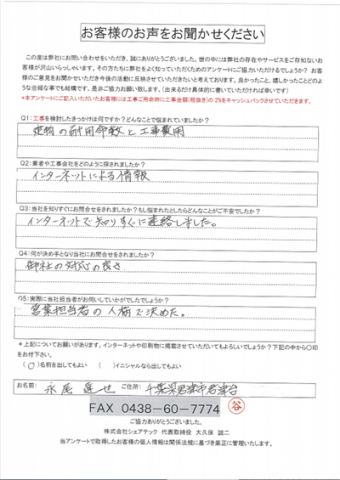 お客様のお声をお聞かせください
この度は弊社にお問い合わせをいただき、誠にありがとうございました。世の中には弊社の存在やサービスをご存知ないお
客様が沢山いらっしゃいます。その方たちに弊社をよく知っていただくためのアンケートにご協力いただけるでしょうか? お客
様のご意見をお聞かせいただき今後の活動に反映させていただきたいと考えております。良かったこと、嬉しかったことどのよ
うな些細な事でも結構です、是非ご協力お願い致します。(出来るだけ具体的に書いていただければ幸いです)
*本アンケートにご記入いただいたお客様には工事ご用命時に工事金額(税抜き)の 2%をキャッシュバックさせていただきます。
Q1:工事を検討したきっかけは何ですか?どんなことで悩まれていましたか?
建物の耐用命数と工事費用
Q2:業者や工事会社をどのように探されましたか?
インターネットによる情報
Q3:当社を知りすぐにお問合せをされましたか?もし悩まれたとしたらどんなことがご不安でしたか?
インターネットで知りすぐに連絡しました。
Q4:何が決め手となり当社にお問合せをされましたか?
御社の対応の良さ
Q5:実際に当社担当者がお伺いしていかがでしたでしょうか?
営業担当者の人柄で決めた。
* 上記についてお願いがあります。インターネットや印刷物に掲載させていただいてもよろしいでしょうか?下記の中から〇印
をお付下さい。
(〇)名前を出してもよい ( )イニシャルなら出してもよい
お名前: 永尾 ご住所: 千葉県君津市
FAX 0438-60-7774 谷
ご協力ありがとうございました。
株式会社シェアテック 代表取締役 大久保 誠二
当アンケートで取得したお客様の個人情報は関係法規に基づき厳正に管理いたします。